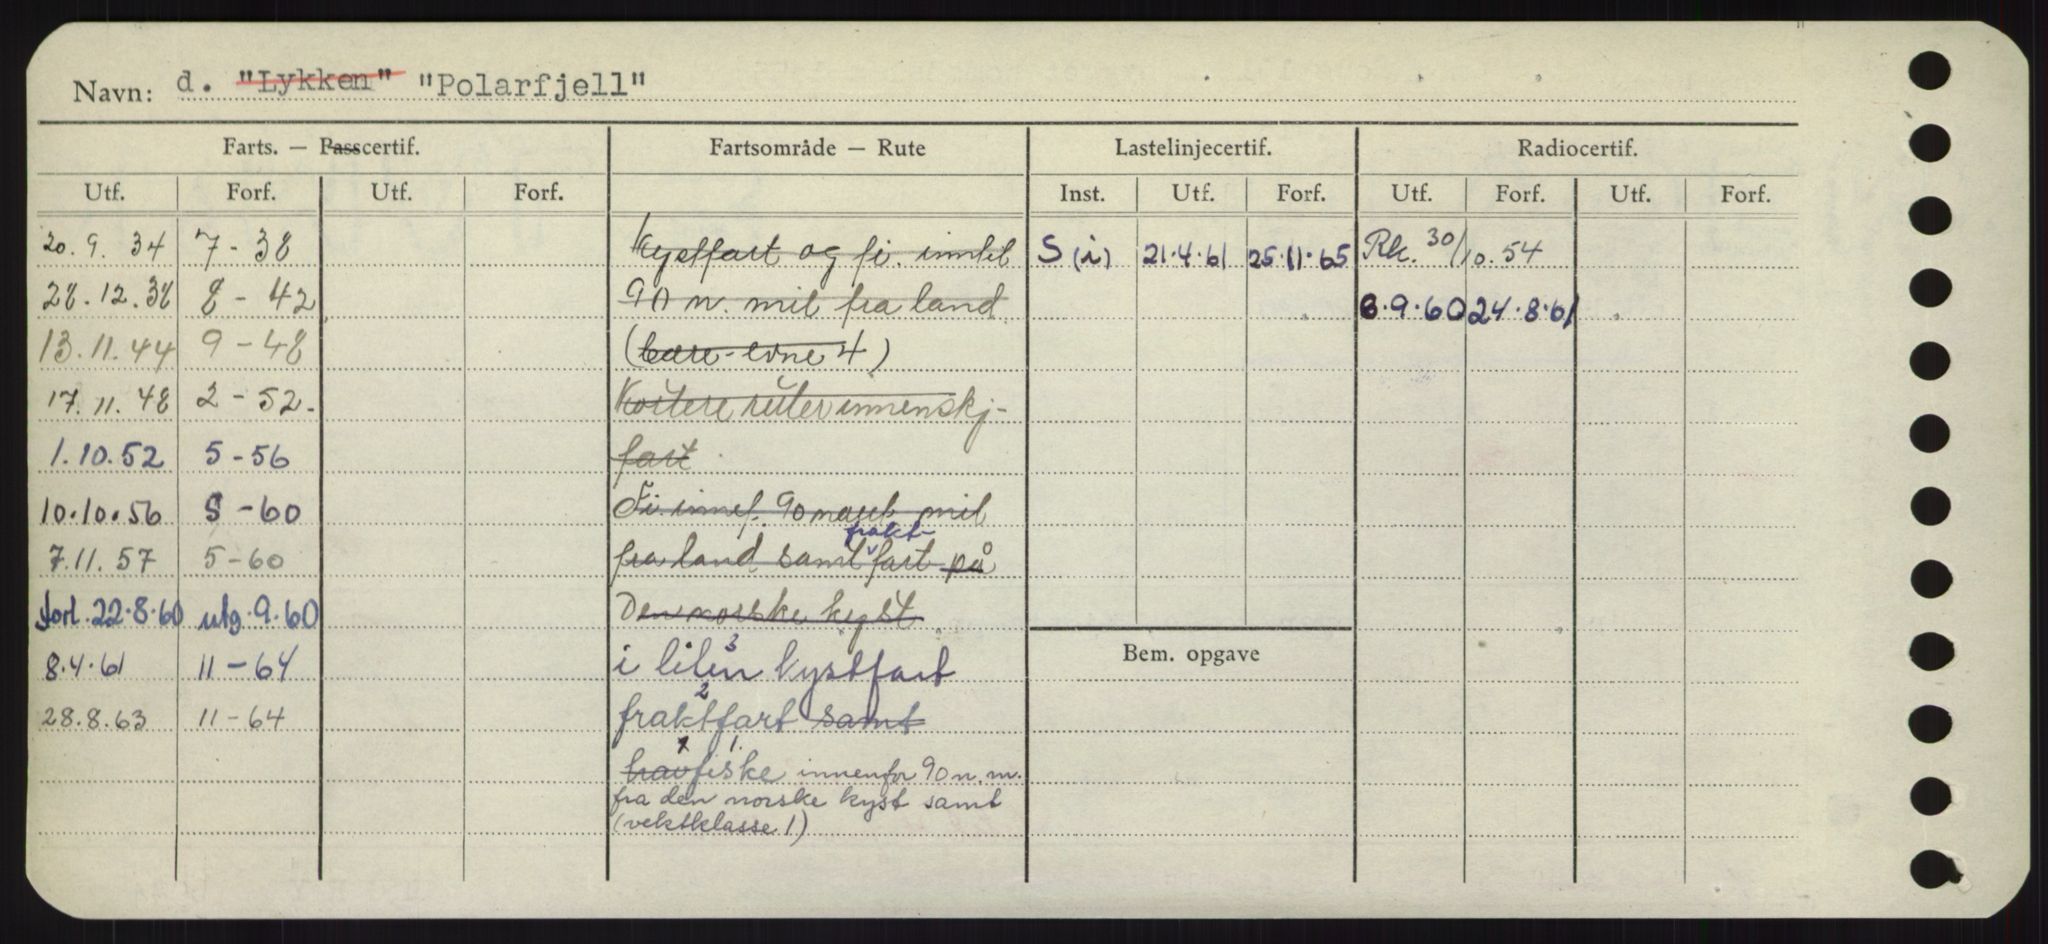 Navn: d. "Lykken" "Polarfjell"
Farts. — Passcertif. Fartsområde — Rute Lastelinjecertif. Radiocertif.
Utf. Forf. Utf. Forf. Inst. Utf. Forf. Utf. Forf. Utf. Forf.
20.9.34 7-38 Kystfart og fi. inntil S (i) 21.4.61 25.11.65 Rk. 30/10.54
28.12.38 8-42 90 n. mil fra land 6.9.60 24.8.61
13.11.44 9-48 (bære-evne 4)
17.11.48 2-52. Kortere ruter innenskj-
1.10.52 5-56 fart.
10.10.56 5-60 Fi. innef. 90 naut. mil
frakt-
7.11.57 5-60 fra land samt fart på
forl. 22.8.60 utg. 9.60 Den norske kyst
Bem. opgave
3
8.4.61 11-64 i liten kystfart
2
28.8.63 11-64 fraktfart samt
1.
havfiske innenfor 90 n.m.
fra den norske kyst samt
(vektklasse 1)